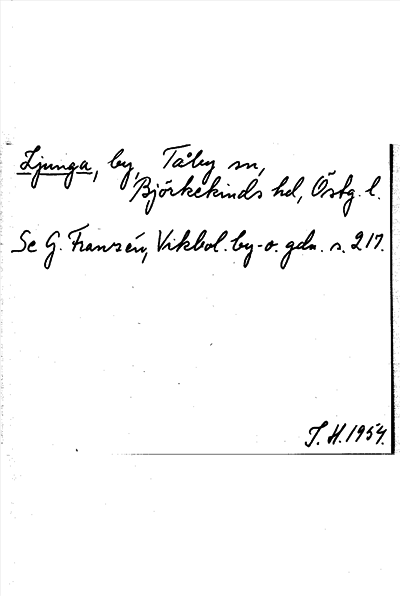 Ljunga, by, Tåby sn,
Björkekinds hd, Östg. l.
Se G. Franzén, Vikbol. by- o. gdn. s. 217.
T. H. 1954.